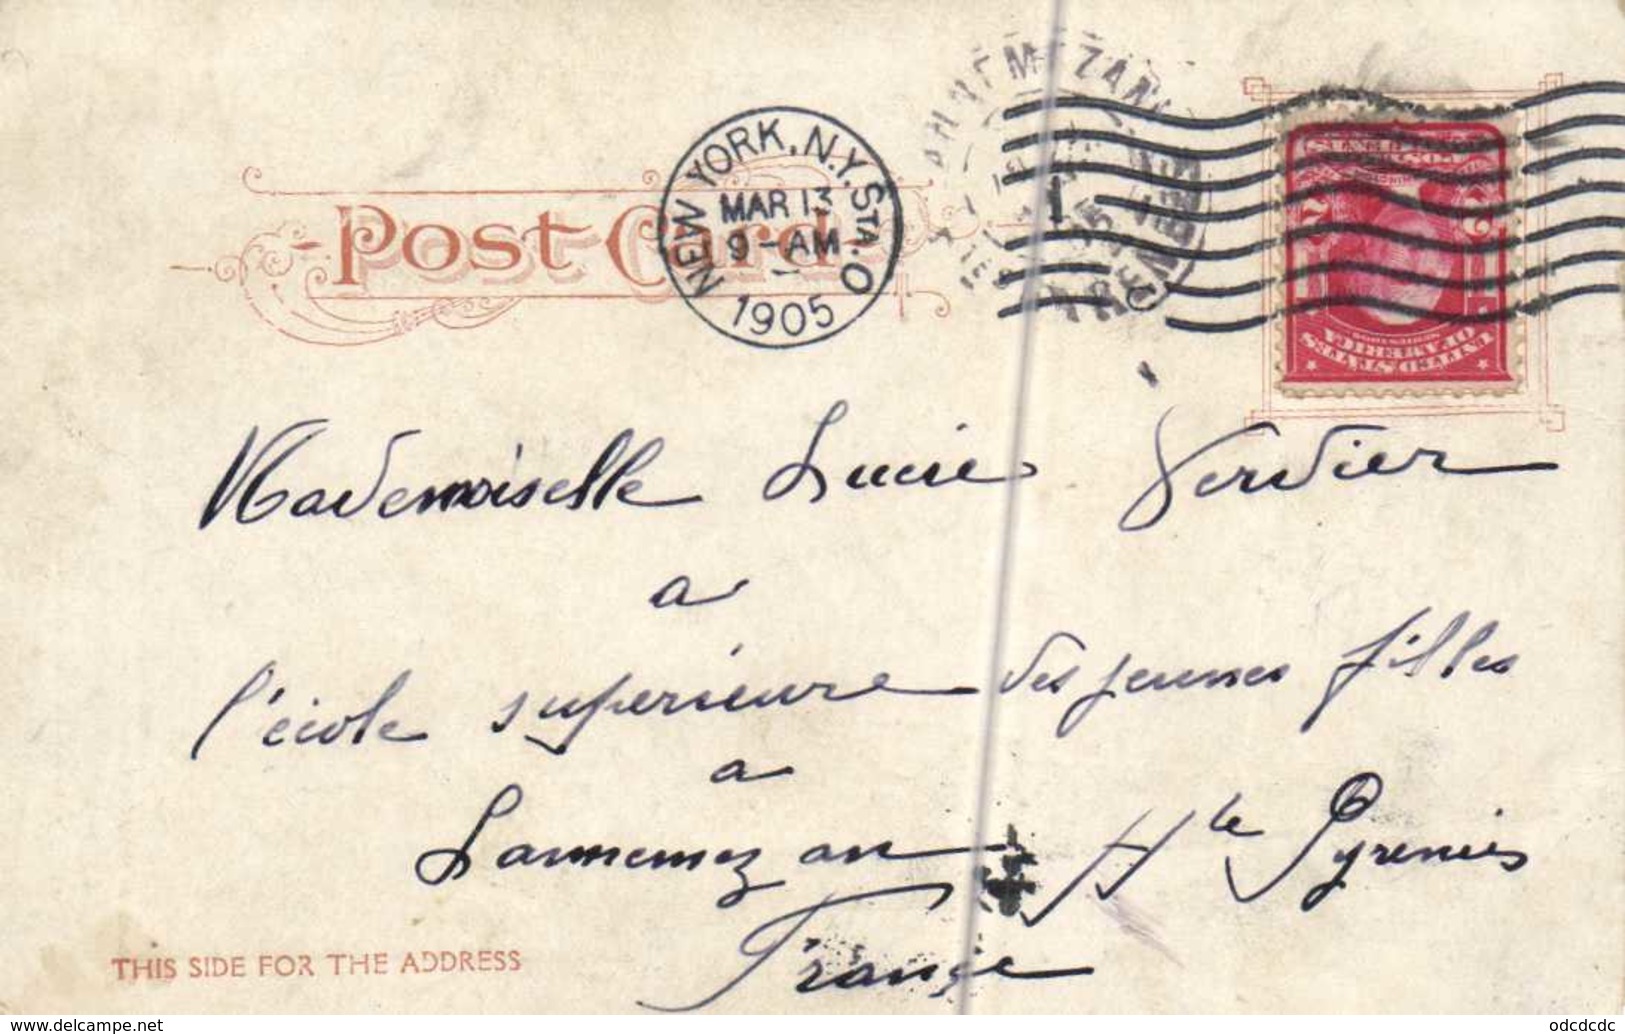 Post Card
NEW YORK, N.Y. STA. O
MAR 13
9-AM
1905
1
UNITED STATES
OF AMERICA
Mademoiselle Lucie Verdier
a
l'école superieure des jeunes filles
a
Lannemezan Hte Pyrenées
France
THIS SIDE FOR THE ADDRESS
https://www.delcampe.net/
odcdcdc